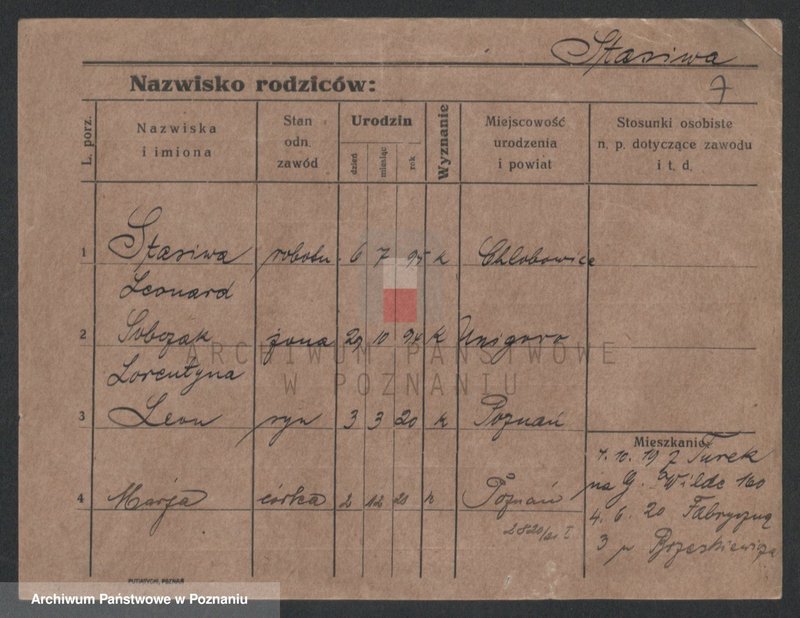 Stasiwa
7
Nazwisko rodziców:
L. porz.
Nazwiska
i imiona
Stan
odn.
zawód
Urodzin
dzień
miesiąc
rok
Wyznanie
Miejscowość
urodzenia
i powiat
Stosunki osobiste
n. p. dotyczące zawodu
i t. d.
1 Stasiwa robotn. 6 7 95 k Chlebowice
Leonard
2 Sobczak żona 29 10 94 k
ARCHIWUM PAŃSTWOWE
W POZNANIU
Lorentyna
3 Leon syn 3 3 20 k Poznań
Mieszkanie:
7 Turek
4 Marja córka 2 12 20 k Poznań
na G. Wilde 160
4. 6. 20 Fabryczna
3 u
PUTIATYCKI, POZNAŃ
Archiwum Państwowe w Poznaniu